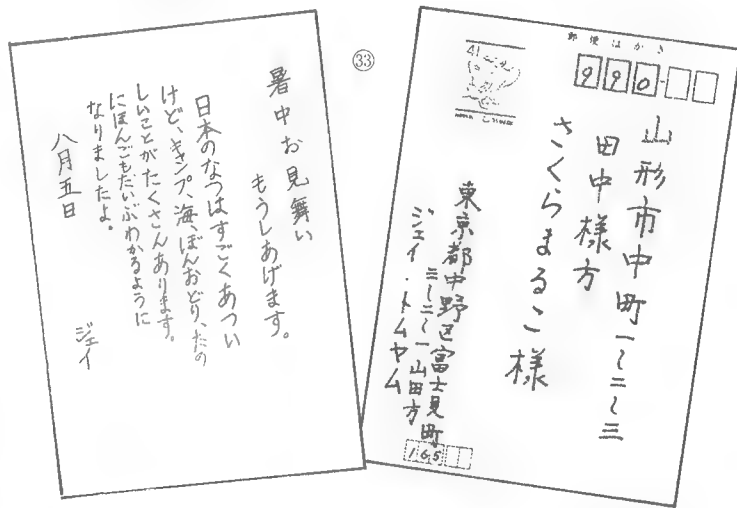 暑中お見舞い
もうしあげます。
日本のなつはすごくあつい
けど、キャンプ、海、ぼんおどり、たの
しいことがたくさんあります。
にほんごもだいぶわかるように
なりましたよ。
八月五日
ジェイ
㉝
郵便はがき
990
山形市中町一〜二〜三
田中様方
さくらまるこ様
東京都中野区富士見町
三〜二〜一 山田方
ジェイ・トムヤム
165